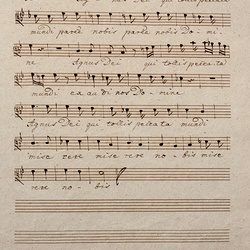 Agnus Dei qui tollis peccata
mundi parce nobis parce nobis Do - mi.
ne Agnus Dei qui tollis peccata
mundi exaudi nos Domine
Agnus Dei qui tollis peccata mundi
mise rere mise rere no - bis mise
rere no - bis